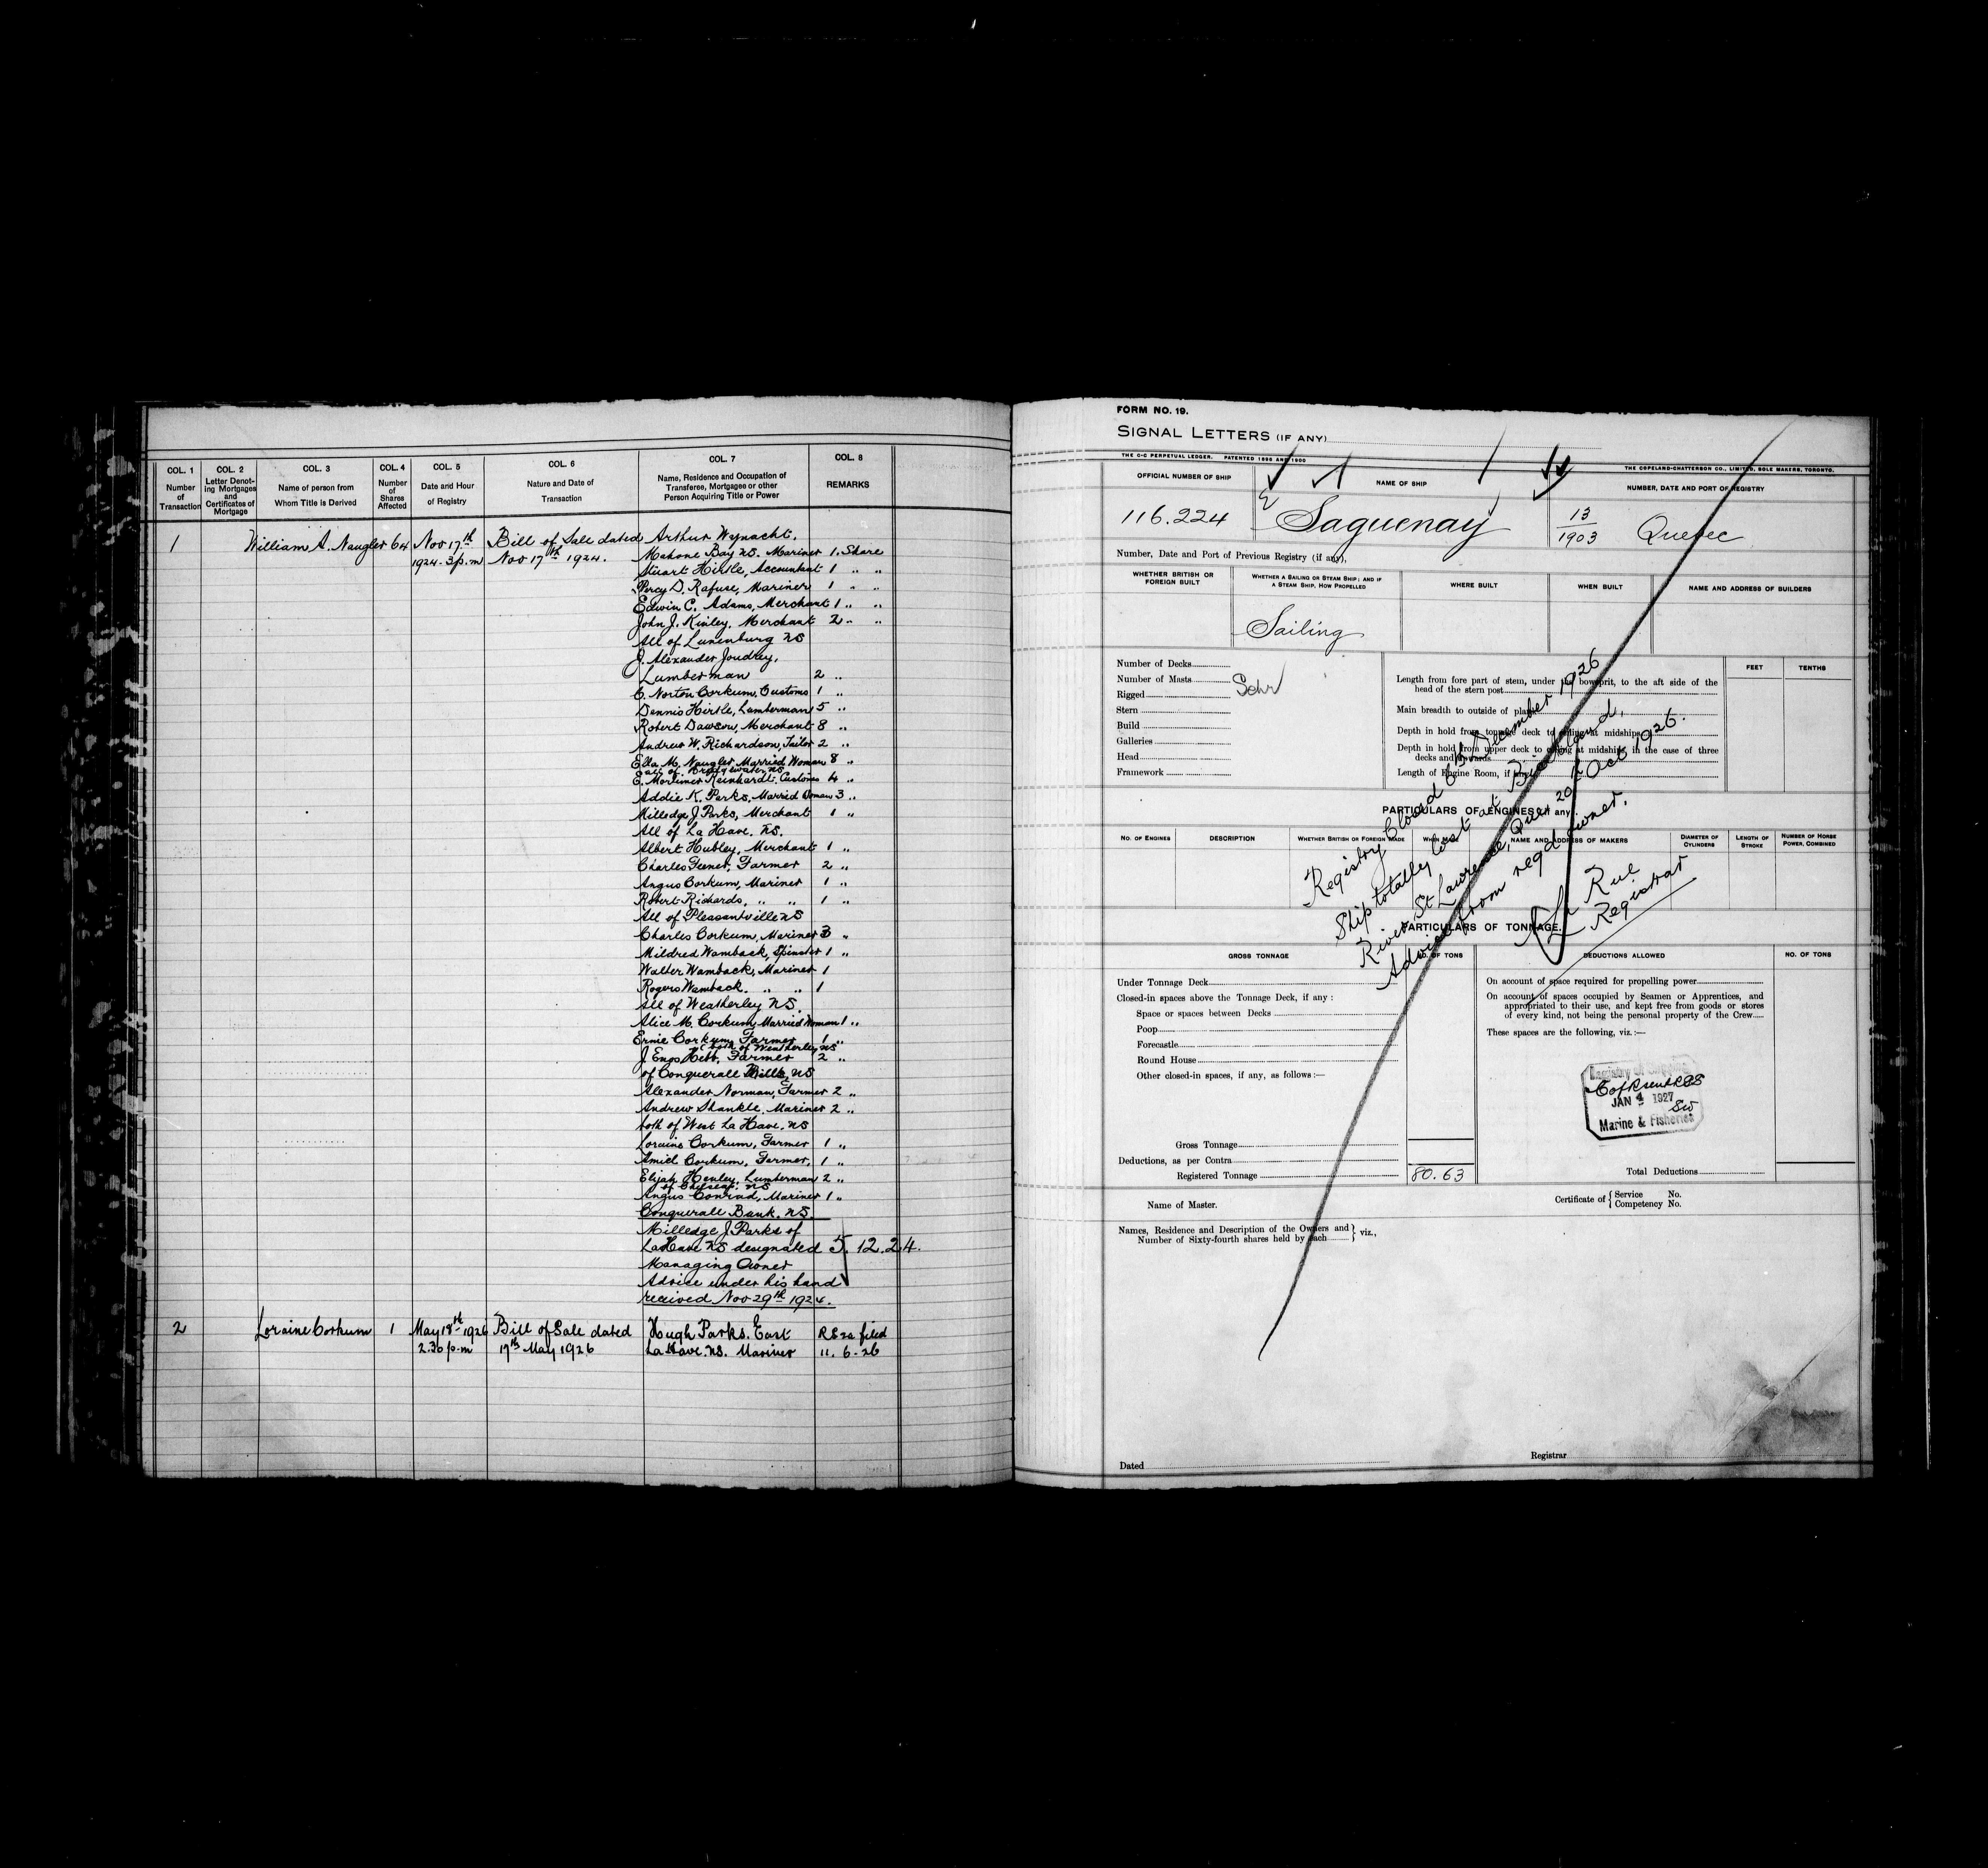 COL. 1 COL. 2 COL. 3 COL. 4 COL. 5 COL. 6 COL. 7 COL. 8
Number of Transaction
Letter Denoting Mortgages and Certificates of Mortgage
Name of person from Whom Title is Derived
Number of Shares Affected
Date and Hour of Registry
Nature and Date of Transaction
Name, Residence and Occupation of Transferee, Mortgagee or other Person Acquiring Title or Power
REMARKS
1 William A. Naugler 64 Nov 17th Bill of Sale dated Arthur Wynacht,
1924. 3 p.m Nov 17th 1924. Mahone Bay NS. Mariner 1. Share
Stuart Hirtle, Accountant 1 " "
Percy D. Rafuse, Mariner 1 " "
Edwin C. Adams, Merchant 1 " "
John J. Kinley, Merchant 2 " "
All of Lunenburg NS
J. Alexander Joudrey,
Lumberman 2 "
C. Norton Corkum, Customs 1 "
Dennis Hirtle, Lumberman 5 "
Robert Dawson, Merchant 8 "
Andrew W. Richardson, Tailor 2 "
Ella M. Naugler Married Woman 8 "
all of Bridgewater NS
E. Mortimer Reinhardt. Customs 4 "
Addie K. Parks, Married Woman 3 "
Milledge J Parks, Merchant 1 "
All of La Have. NS.
Albert Hubley, Merchant 1 "
Charles Feener, Farmer 2 "
Angus Corkum, Mariner 1 "
Robert Richards, " " 1 "
All of Pleasantville NS
Charles Corkum, Mariner 3 "
Mildred Wamback, Spinster 1 "
Walter Wamback, Mariner 1
Rogers Wamback. " " 1
All of Weatherley NS.
Alice M. Corkum, Married Woman 1 "
Ernie Corkum, Farmer 1 "
both of Weatherley NS
J. Enos Hebb, Farmer 2 "
of Conquerall Mills, NS
Alexander Norman, Farmer 2 "
Andrew Shankle, Mariner 2 "
both of West La Have. NS
Loraine Corkum, Farmer 1 "
Amiel Corkum, Farmer, 1 "
Elijah Henley, Lumberman 2 "
of Chelsea, NS
Angus Conrad, Mariner 1 "
Conquerall Bank. NS.
Milledge J Parks of
La Have NS designated 5. 12. 24.
Managing Owner
Advice under his hand
received Nov 29th 1924.
2 Loraine Corkum 1 May 18th 1926 Bill of Sale dated Hugh Parks. East filed
2.30 p.m 17th May 1926 La Have. NS. Mariner 11. 6. 26
FORM NO. 19.
SIGNAL LETTERS (IF ANY)
THE C-C PERPETUAL LEDGER. PATENTED 1898 AND 1900
THE COPELAND-CHATTERSON CO., LIMITED, SOLE MAKERS, TORONTO.
OFFICIAL NUMBER OF SHIP NAME OF SHIP NUMBER, DATE AND PORT OF REGISTRY
116.224 Saguenay 13/1903 Quebec
Number, Date and Port of Previous Registry (if any),
WHETHER BRITISH OR FOREIGN BUILT
WHETHER A SAILING OR STEAM SHIP; AND IF A STEAM SHIP, HOW PROPELLED
WHERE BUILT
WHEN BUILT
NAME AND ADDRESS OF BUILDERS
Sailing
Number of Decks
Number of Masts
Rigged Schr
Stern
Build
Galleries
Head
Framework
FEET TENTHS
Length from fore part of stem, under the bowsprit, to the aft side of the
head of the stern post
Main breadth to outside of plank
Depth in hold from tonnage deck to ceiling at midships
Depth in hold from upper deck to ceiling at midships in the case of three
decks and upwards
Length of Engine Room, if any
Registry Closed 6th December 1926
Ship totally lost at Bic Island,
River St Lawrence, Que 20th Oct 1926.
Advice from regd owner.
Registrar
PARTICULARS OF ENGINES (if any).
NO. OF ENGINES DESCRIPTION WHETHER BRITISH OR FOREIGN MADE WHEN MADE NAME AND ADDRESS OF MAKERS DIAMETER OF CYLINDERS LENGTH OF STROKE NUMBER OF HORSE POWER, COMBINED
PARTICULARS OF TONNAGE.
GROSS TONNAGE NO. OF TONS DEDUCTIONS ALLOWED NO. OF TONS
Under Tonnage Deck
Closed-in spaces above the Tonnage Deck, if any :
Space or spaces between Decks
Poop
Forecastle
Round House
Other closed-in spaces, if any, as follows :—
On account of space required for propelling power
On account of spaces occupied by Seamen or Apprentices, and
appropriated to their use, and kept free from goods or stores
of every kind, not being the personal property of the Crew
These spaces are the following, viz. :—
Registry of Shipping
JAN 4 1927
Marine & Fisheries
Gross Tonnage
Deductions, as per Contra
Registered Tonnage 80.63
Total Deductions
Name of Master.
Certificate of { Service No.
Competency No.
Names, Residence and Description of the Owners and } viz.,
Number of Sixty-fourth shares held by each
Dated
Registrar